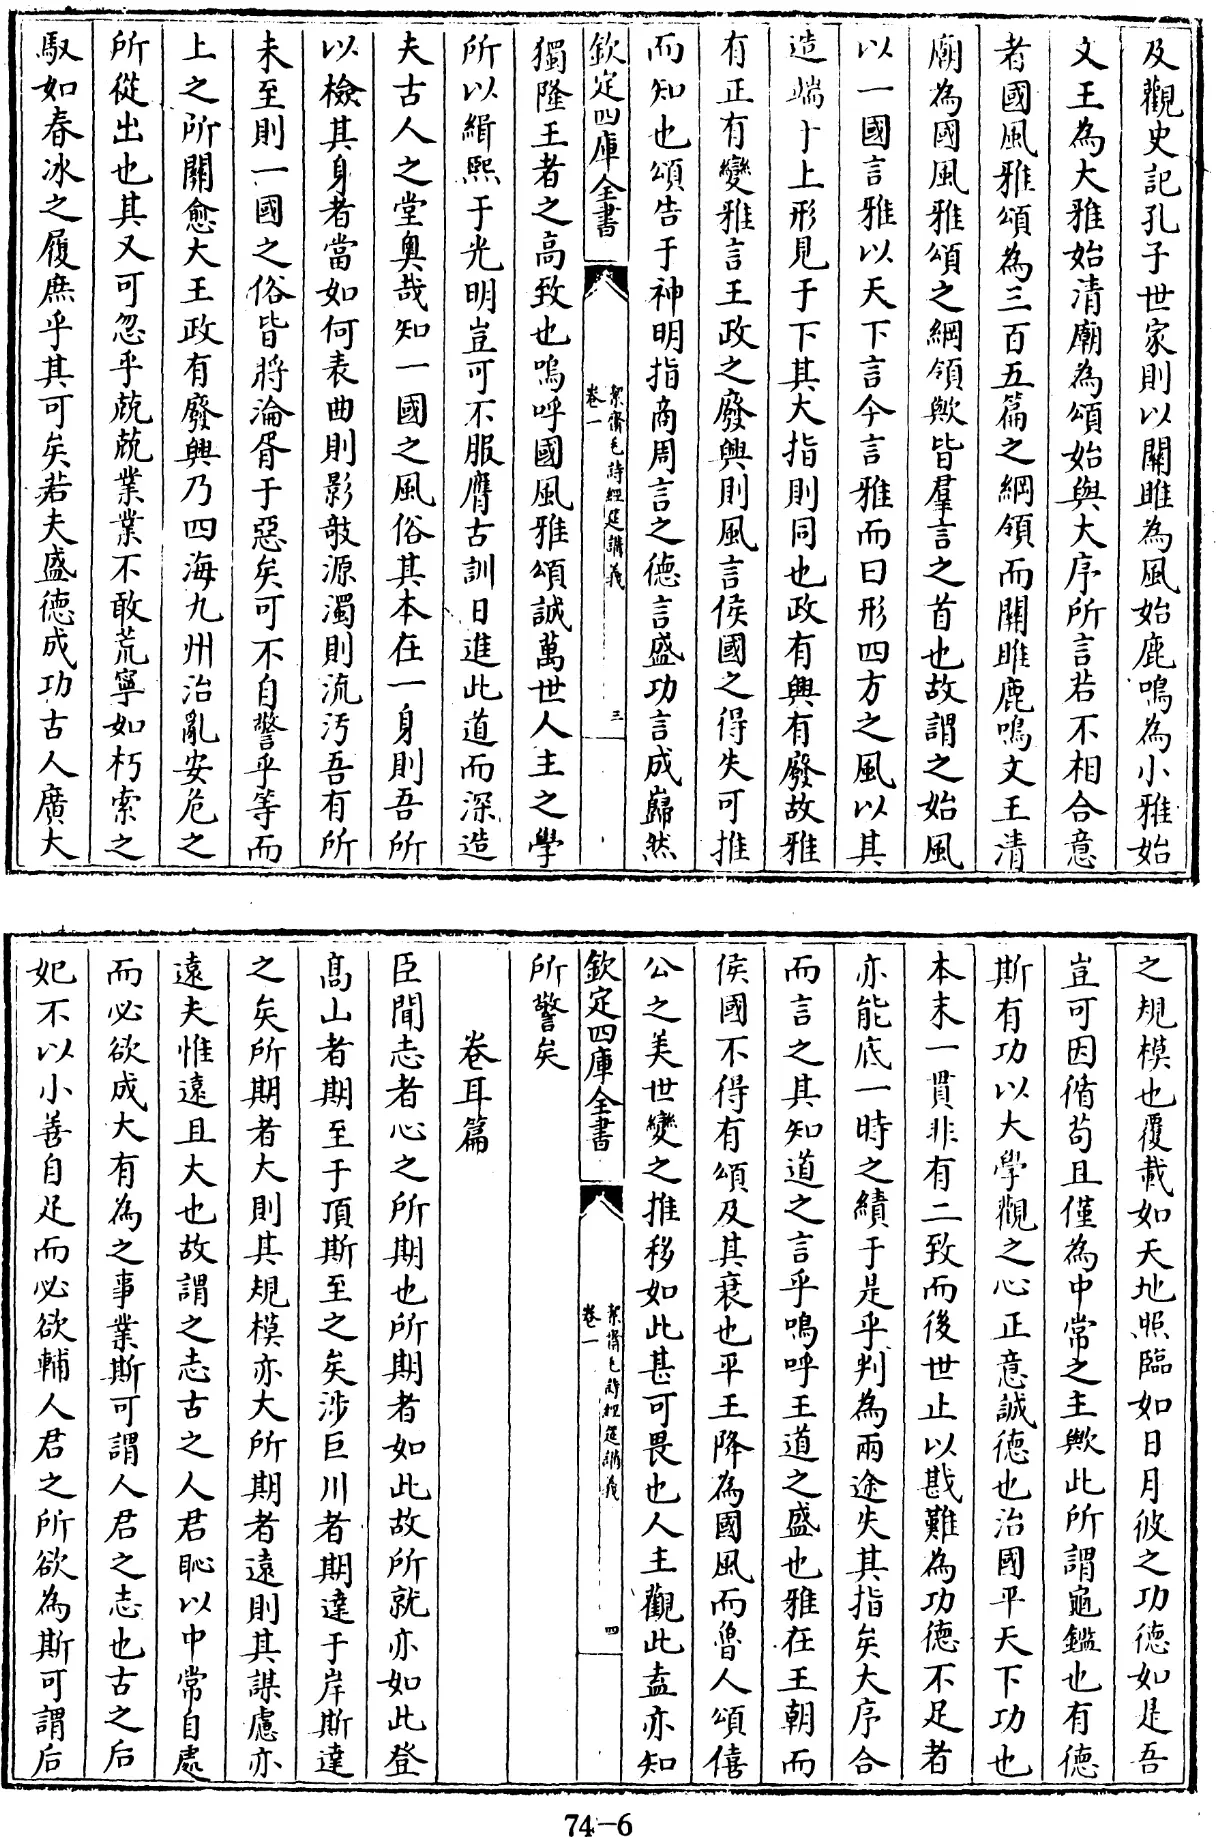 及觀史記孔子世家則以關雎為風始鹿鳴為小雅始
文王為大雅始清廟為頌始與大序所言若不相合意
者國風雅頌為三百五篇之綱領而關雎鹿鳴文王清
廟為國風雅頌之綱領歟皆羣言之首也故謂之始風
以一國言雅以天下言今言雅而曰形四方之風以其
造端于上形見于下其大指則同也政有興有廢故雅
有正有變雅言王政之廢興則風言侯國之得失可推
而知也頌告于神明指商周言之德言盛功言成巋然
欽定四庫全書
絜齋毛詩經筵講義
卷一
三
獨隆王者之高致也嗚呼國風雅頌誠萬世人主之學
所以緝熙于光明豈可不服膺古訓日進此道而深造
夫古人之堂奧哉知一國之風俗其本在一身則吾所
以檢其身者當如何表曲則影敧源濁則流汚吾有所
未至則一國之俗皆將淪胥于惡矣可不自警乎等而
上之所關愈大王政有廢興乃四海九州治亂安危之
所從出也其又可忽乎兢兢業業不敢荒寧如朽索之
馭如春冰之履庶乎其可矣若夫盛德成功古人廣大
之規模也覆載如天地照臨如日月彼之功德如是吾
豈可因循苟且僅為中常之主歟此所謂龜鑑也有德
斯有功以大學觀之心正意誠德也治國平天下功也
本末一貫非有二致而後世止以戡難為功德不足者
亦能底一時之績于是乎判為兩途失其指矣大序合
而言之其知道之言乎嗚呼王道之盛也雅在王朝而
侯國不得有頌及其衰也平王降為國風而魯人頌僖
公之美世變之推移如此甚可畏也人主觀此盍亦知
欽定四庫全書
絜齋毛詩經筵講義
卷一
四
所警矣
卷耳篇
臣聞志者心之所期也所期者如此故所就亦如此登
高山者期至于頂斯至之矣涉巨川者期達于岸斯達
之矣所期者大則其規模亦大所期者遠則其謀慮亦
遠夫惟遠且大也故謂之志古之人君恥以中常自處
而必欲成大有為之事業斯可謂人君之志也古之后
妃不以小善自足而必欲輔人君之所欲為斯可謂后
74-6